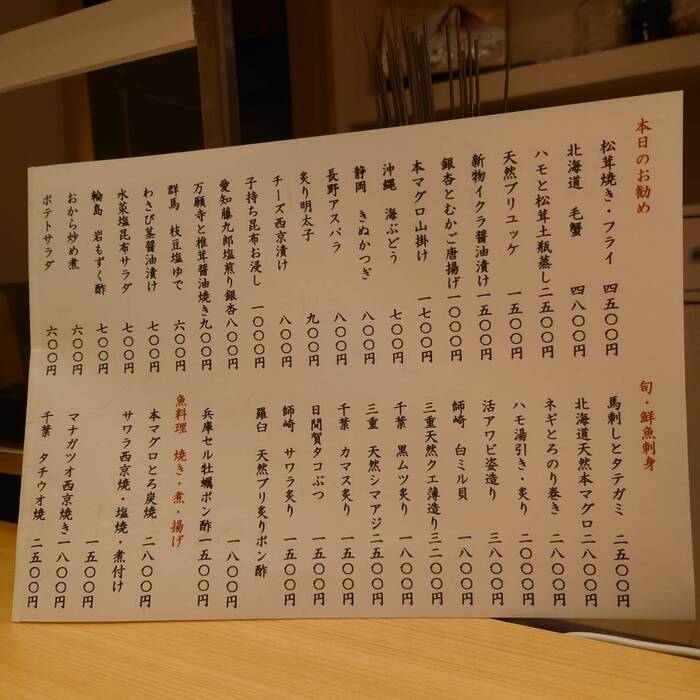 本日のお勧め
松茸焼き・フライ 四五〇〇円
北海道 毛蟹 四八〇〇円
ハモと松茸土瓶蒸し 二五〇〇円
天然ブリユッケ 一五〇〇円
新物イクラ醤油漬け 一五〇〇円
銀杏とむかご唐揚げ 一〇〇〇円
本マグロ山掛け 一七〇〇円
沖縄 海ぶどう 七〇〇円
静岡 きぬかつぎ 八〇〇円
長野アスパラ 八〇〇円
炙り明太子 九〇〇円
チーズ西京漬け 八〇〇円
子持ち昆布お浸し 一〇〇〇円
愛知藤九郎塩煎り銀杏 八〇〇円
万願寺と椎茸醤油焼き 九〇〇円
群馬 枝豆塩ゆで 六〇〇円
わさび茎醤油漬け 七〇〇円
水菜塩昆布サラダ 七〇〇円
輪島 岩もずく酢 七〇〇円
おから炒め煮 六〇〇円
ポテトサラダ 六〇〇円
旬・鮮魚刺身
馬刺しとタテガミ 二五〇〇円
北海道天然本マグロ 二八〇〇円
ネギとろのり巻き 二〇〇〇円
ハモ湯引き・炙り 二〇〇〇円
活アワビ姿造り 三八〇〇円
師崎 白ミル貝 一八〇〇円
三重天然クエ薄造り 三二〇〇円
千葉 黒ムツ炙り 一八〇〇円
三重 天然シマアジ 二五〇〇円
千葉 カマス炙り 一五〇〇円
日間賀タコぶつ 一五〇〇円
師崎 サワラ炙り 一五〇〇円
羅臼 天然ブリ炙りポン酢
一八〇〇円
兵庫セル牡蠣ポン酢 一五〇〇円
魚料理 焼き・煮・揚げ
本マグロとろ炭焼 二八〇〇円
サワラ西京焼・塩焼・煮付け
一五〇〇円
マナガツオ西京焼き 一八〇〇円
千葉 タチウオ焼 二五〇〇円